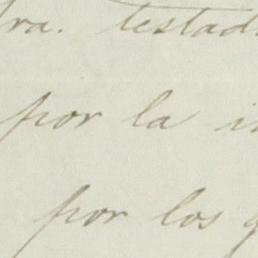 tra. testad
por la i
por los q